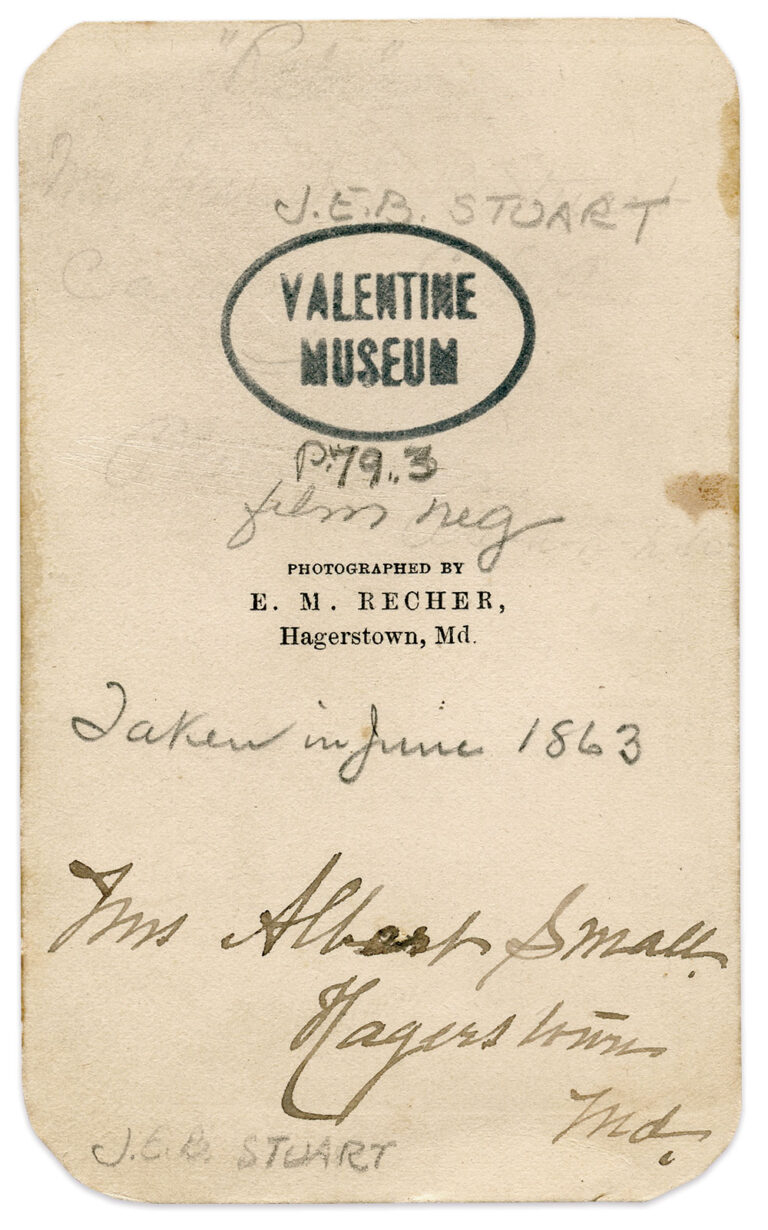 J.E.B. STUART
VALENTINE
MUSEUM
P.79..3
film neg
PHOTOGRAPHED BY
E. M. RECHER,
Hagerstown, Md.
Taken in June 1863
Mrs Albert Small.
Hagerstown
Md.
J.E.B. STUART